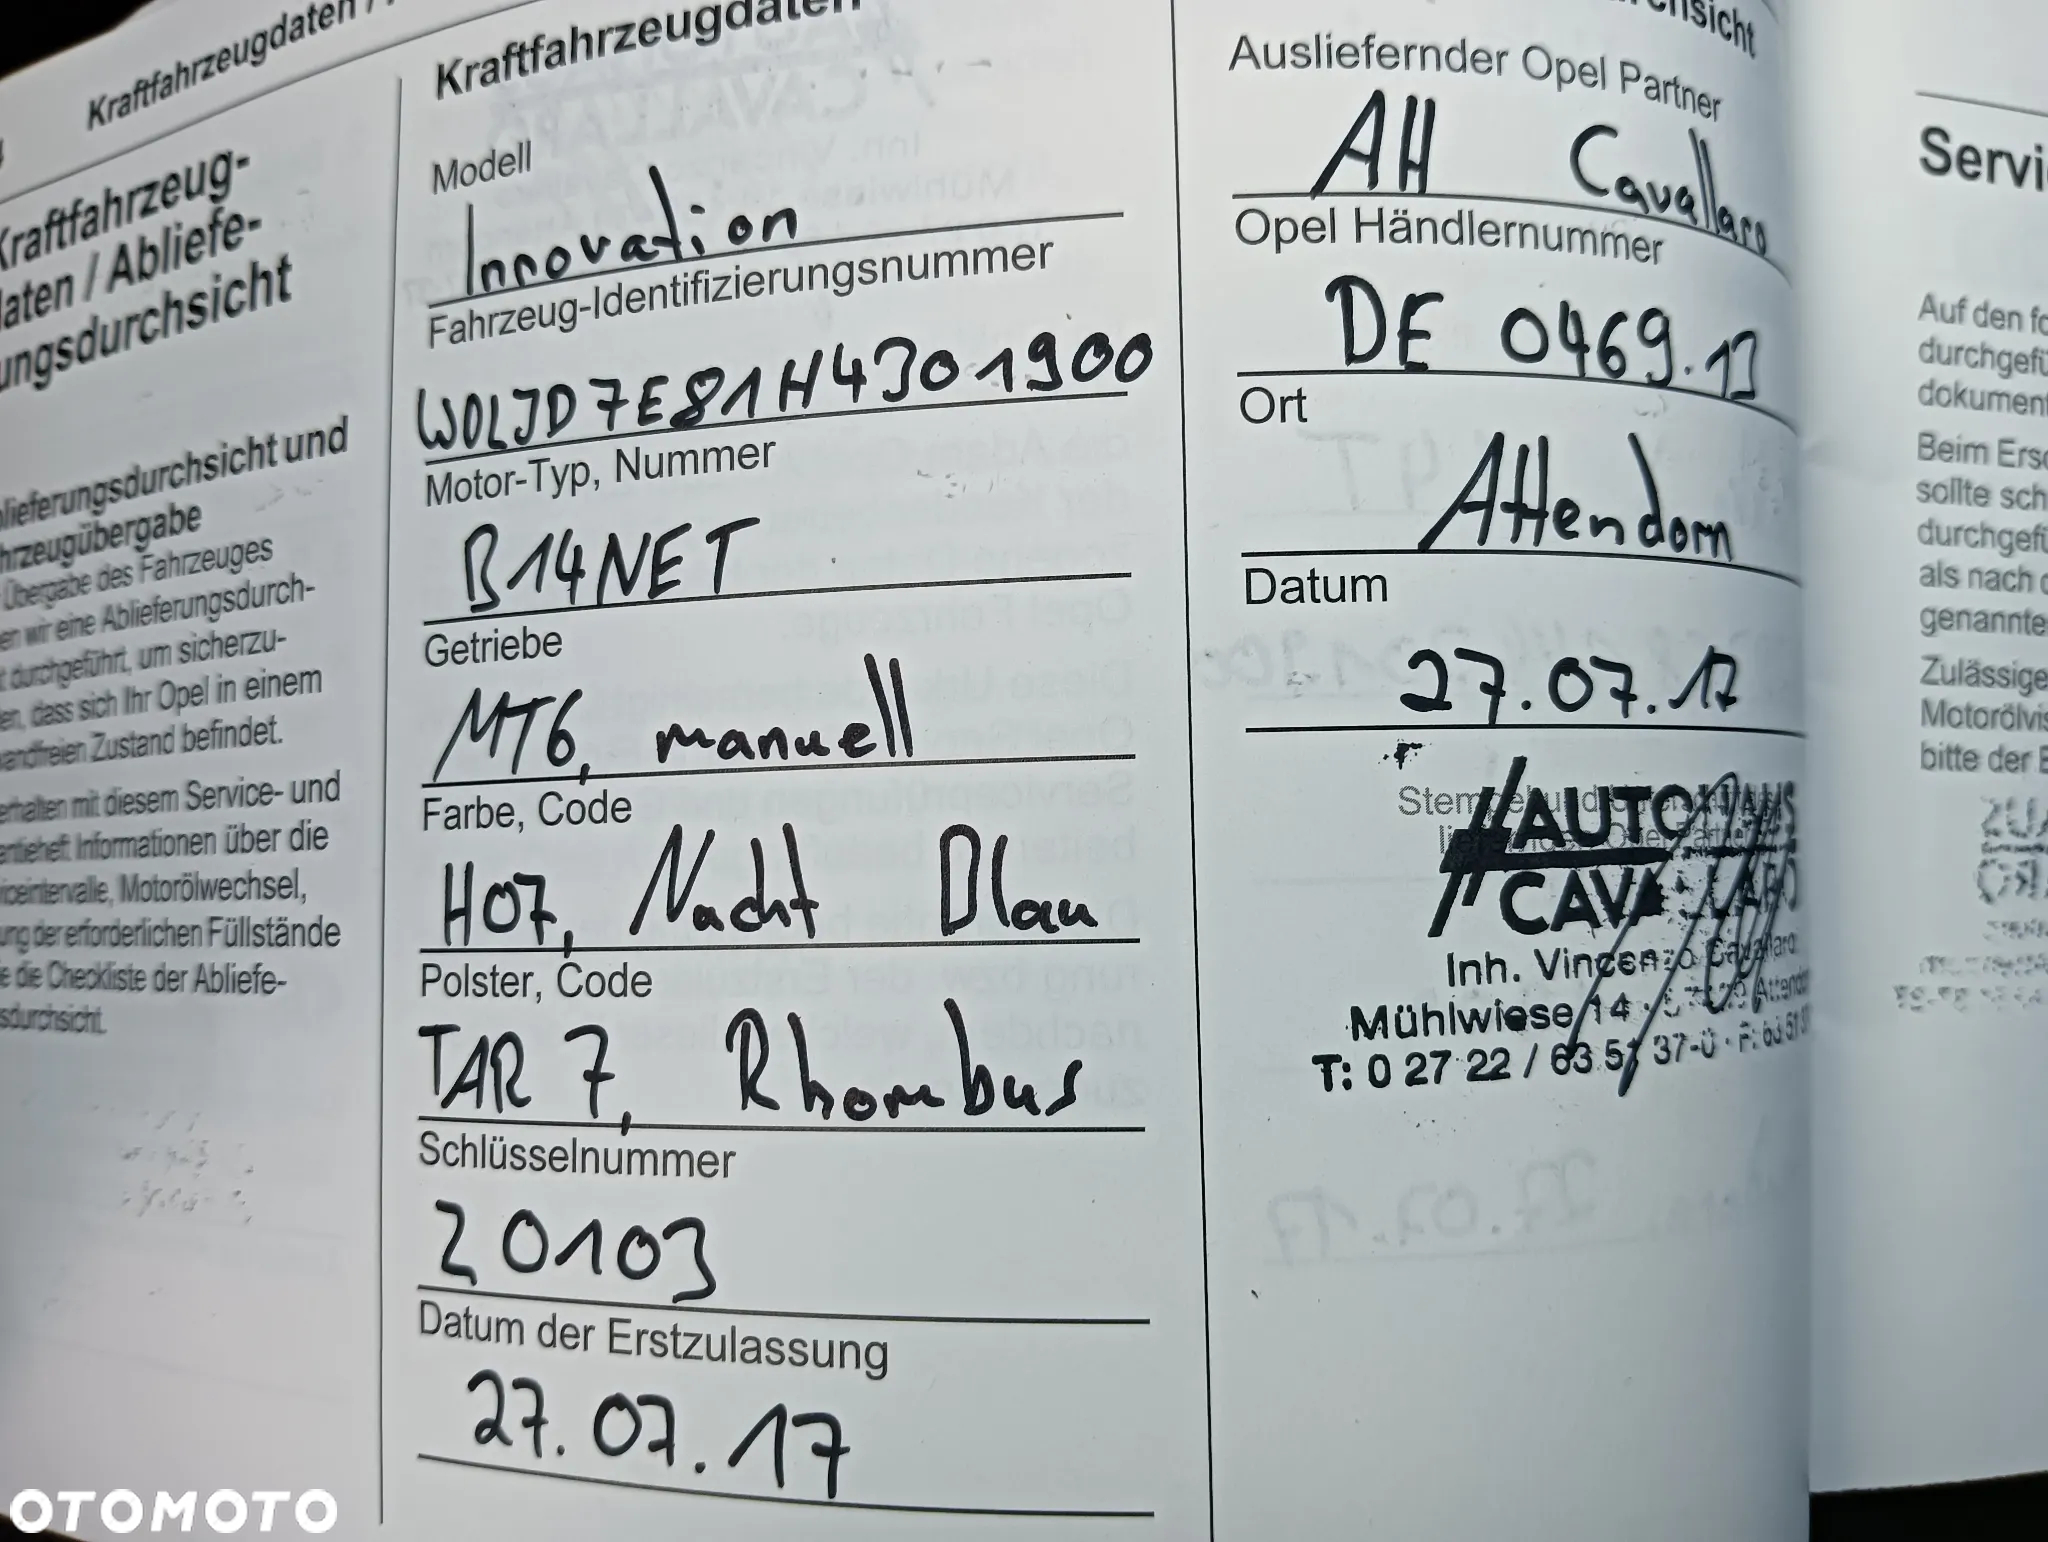 Kraftfahrzeugdaten /
Kraftfahrzeug-
daten / Abliefe-
rungsdurchsicht
Ablieferungsdurchsicht und
Fahrzeugübergabe
Übergabe des Fahrzeuges
wir eine Ablieferungsdurch-
durchgeführt, um sicherzu-
dass sich Ihr Opel in einem
Zustand befindet.
erhalten mit diesem Service- und
Informationen über die
Motorölwechsel,
der erforderlichen Füllstände
die Checkliste der Abliefe-
Kraftfahrzeugdaten
Modell
Innovation
Fahrzeug-Identifizierungsnummer
W0LJD7E81H4301900
Motor-Typ, Nummer
B14NET
Getriebe
MT6, manuell
Farbe, Code
H07, Nacht Blau
Polster, Code
TAR 7, Rhombus
Schlüsselnummer
20103
Datum der Erstzulassung
27.07.17
Ausliefernder Opel Partner
AH Cavallaro
Opel Händlernummer
DE 0469.13
Ort
Attendorn
Datum
27.07.17
AUTOHAUS
CAVALLARO
Inh. Vincenzo Cavallaro
Mühlwiese 14
T: 0 27 22 / 63 51 37-0
Servi
Auf den fo
durchgefü
dokument
Beim Ersc
sollte sch
durchgefü
als nach d
genannte
Zulässige
Motorölvis
bitte der B
OTOMOTO